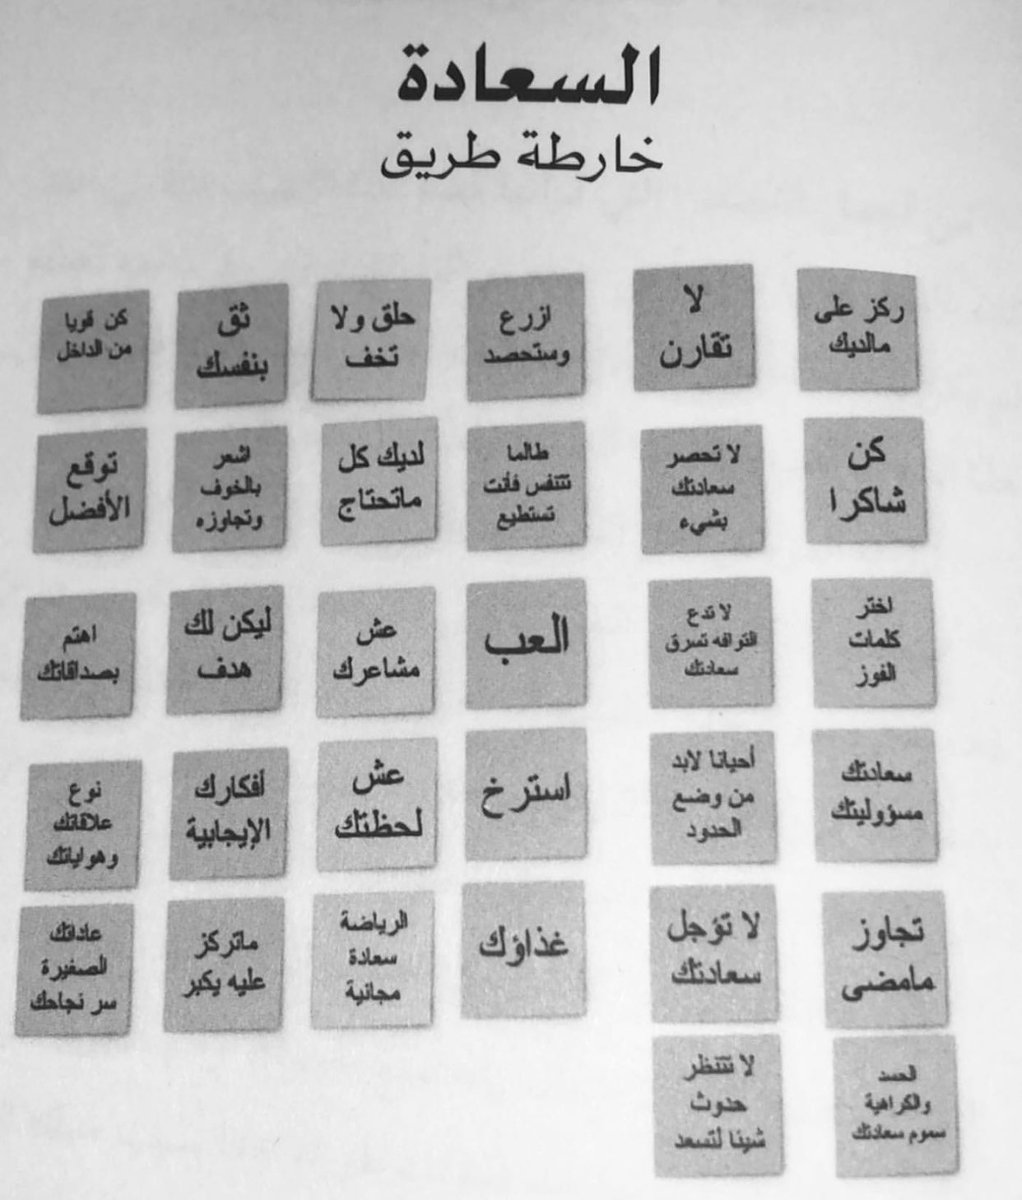 السعادة
خارطة طريق
ركز على
مالديك
لا
تقارن
ازرع
وستحصد
حلق ولا
تخف
ثق
بنفسك
كن قويا
من الداخل
كن
شاكرا
لا تحصر
سعادتك
بشيء
طالما
تتنفس فأنت
تستطيع
لديك كل
ماتحتاج
اشعر
بالخوف
وتجاوزه
توقع
الأفضل
اختر
كلمات
الفوز
لا تدع
التوافه تسرق
سعادتك
العب
عش
مشاعرك
ليكن لك
هدف
اهتم
بصداقاتك
سعادتك
مسؤوليتك
أحيانا لابد
من وضع
الحدود
استرخ
عش
لحظتك
أفكارك
الإيجابية
نوع
علاقاتك
وهواياتك
تجاوز
مامضى
لا تؤجل
سعادتك
غذاؤك
الرياضة
سعادة
مجانية
ماتركز
عليه يكبر
عاداتك
الصغيرة
سر نجاحك
الحسد
والكراهية
سموم سعادتك
لا تنتظر
حدوث
شيئا لتسعد